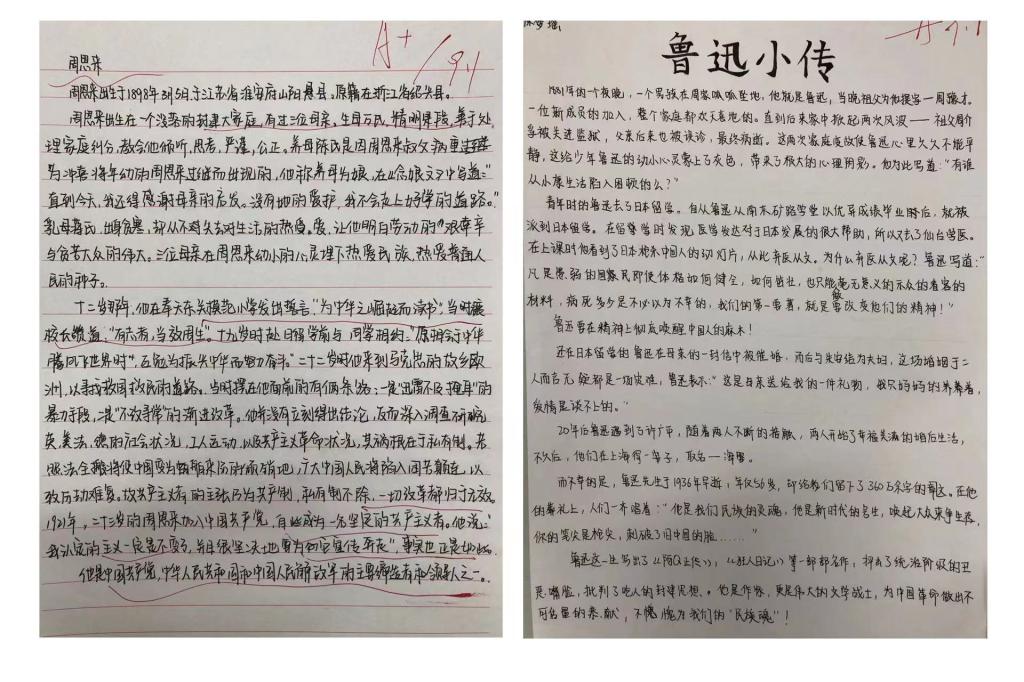 A+ 9.11
周恩来
周恩来出生于1898年3月5日于江苏省淮安府山阳县。原籍在浙江省绍兴县。
周恩来出生在一个没落的封建大家庭,有过三位母亲。生母万氏,精明果段,善于处
理家庭纠分,教会他倾听、思考,严谨,公正。养母陈氏是因周恩来叔父病重
为冲喜将年幼的周恩来过继而出现的,他称养母为娘,在《念娘文》中写道:“
直到今天,我还得感谢母亲的启发。没有她的爱护,我不会走上好学的道路。”
乳母蒋氏,出身贫寒,却从不对失去对生活的热爱,让他明白劳动的艰辛
与贫苦大众的伟大。三位母亲在周恩来幼小的心灵埋下热爱民族、热爱普通人
民的种子。
十二岁那年,他在奉天东关模范小学发出誓言,“为中华之崛起而读书”,当时
校长赞道:“有志者,当效周生”。十九岁时赴日留学前与同学相约:“愿相会于中华
腾飞世界时”,互勉为振兴中华而努力奋斗。二十二岁时他来到马克思的故乡欧
洲,以寻求救国救民的道路。当时摆在他面前的有俩条路:一是“迅雷不及掩耳”的
暴力手段,二是“不改寻常”的渐进改革。他并没有立刻得出结论,反而深入调查研究
英、美、法、德的社会状况,工人运动,以及共产主义革命状况,其祸根在于私有制。
广大中国人民将陷入困苦颠连,以
致历劫难复。故共产主义者的主张乃为共产制,私有制不除,一切改革都归于无效。
1921年,二十三岁的周恩来加入中国共产党,自此成为一名坚定的共产主义者。他说:
“我认定的主义一定是不变了,并且很坚决地要为他宣传奔走”,事实也正是如此。
他是中国共产党,中华人民共和国和中国人民解放军的主要缔造者和领导人之一。
A 9.11
鲁迅小传
1881年的一个夜晚,一个男孩在周家呱呱坠地,他就是鲁迅,当晚祖父为他摆宴一周豫才。
一位新成员的加入,整个家庭都欢天喜地的。直到后来家中掀起两次风波——祖父周介
孚被关进监狱,父亲后来也被误诊,最终病逝。这两次家庭变故使鲁迅心里久久不能平
静,这给少年鲁迅的幼小心灵蒙上了灰色,带来了极大的心理阴影。他为此写道:“有谁
从小康生活陷入困顿的么?”
青年时的鲁迅去了日本留学。自从鲁迅从南京矿路学堂以优异成绩毕业时后,就被
派到日本留学。在留学时发现医学发达对于日本发展的很大帮助,所以又去了仙台学医。
在上课时他看到了日本枪杀中国人的幻灯片,从此弃医从文。为什么弃医从文呢?鲁迅写道:“
凡是愚弱的国家民即使体格如何健全,如何茁壮,也只能做毫无意义的示众的看客的
材料,病死多少是不必以为不幸的,我们的第一要著,就是要改变他们的精神!”
鲁迅要在精神上彻底唤醒中国人的麻木!
还在日本留学的鲁迅在母亲的一封信中被催婚,而后与朱安结为夫妇,这场婚姻于二
人而言无疑都是一场灾难,鲁迅表示:“这是母亲送给我的一件礼物,我只好好的养着,
爱情是谈不上的。”
20年后鲁迅遇到了许广平,随着两人不断的接触,两人开始了幸福美满的婚后生活,
不久后,他们在上海得一子,取名一海婴。
而不幸的是,鲁迅先生于1936年早逝,年仅56岁,却给我们留下了360万余字的著述。在他
的葬礼上,人们一齐唱着:“他是我们民族的灵魂,他是新时代的号声,唤起大众来争生存,
你的笔尖是枪尖,刺破了旧中国的脸……”
鲁迅这一生写出了《阿Q正传》,《狂人日记》等一部部名作,揭露了统治阶级的丑
恶嘴脸,批判了吃人的封建思想。他是作家,更是伟大的文学战士,为中国革命做出不
可名量的奉献,不愧为我们的“民族魂”!